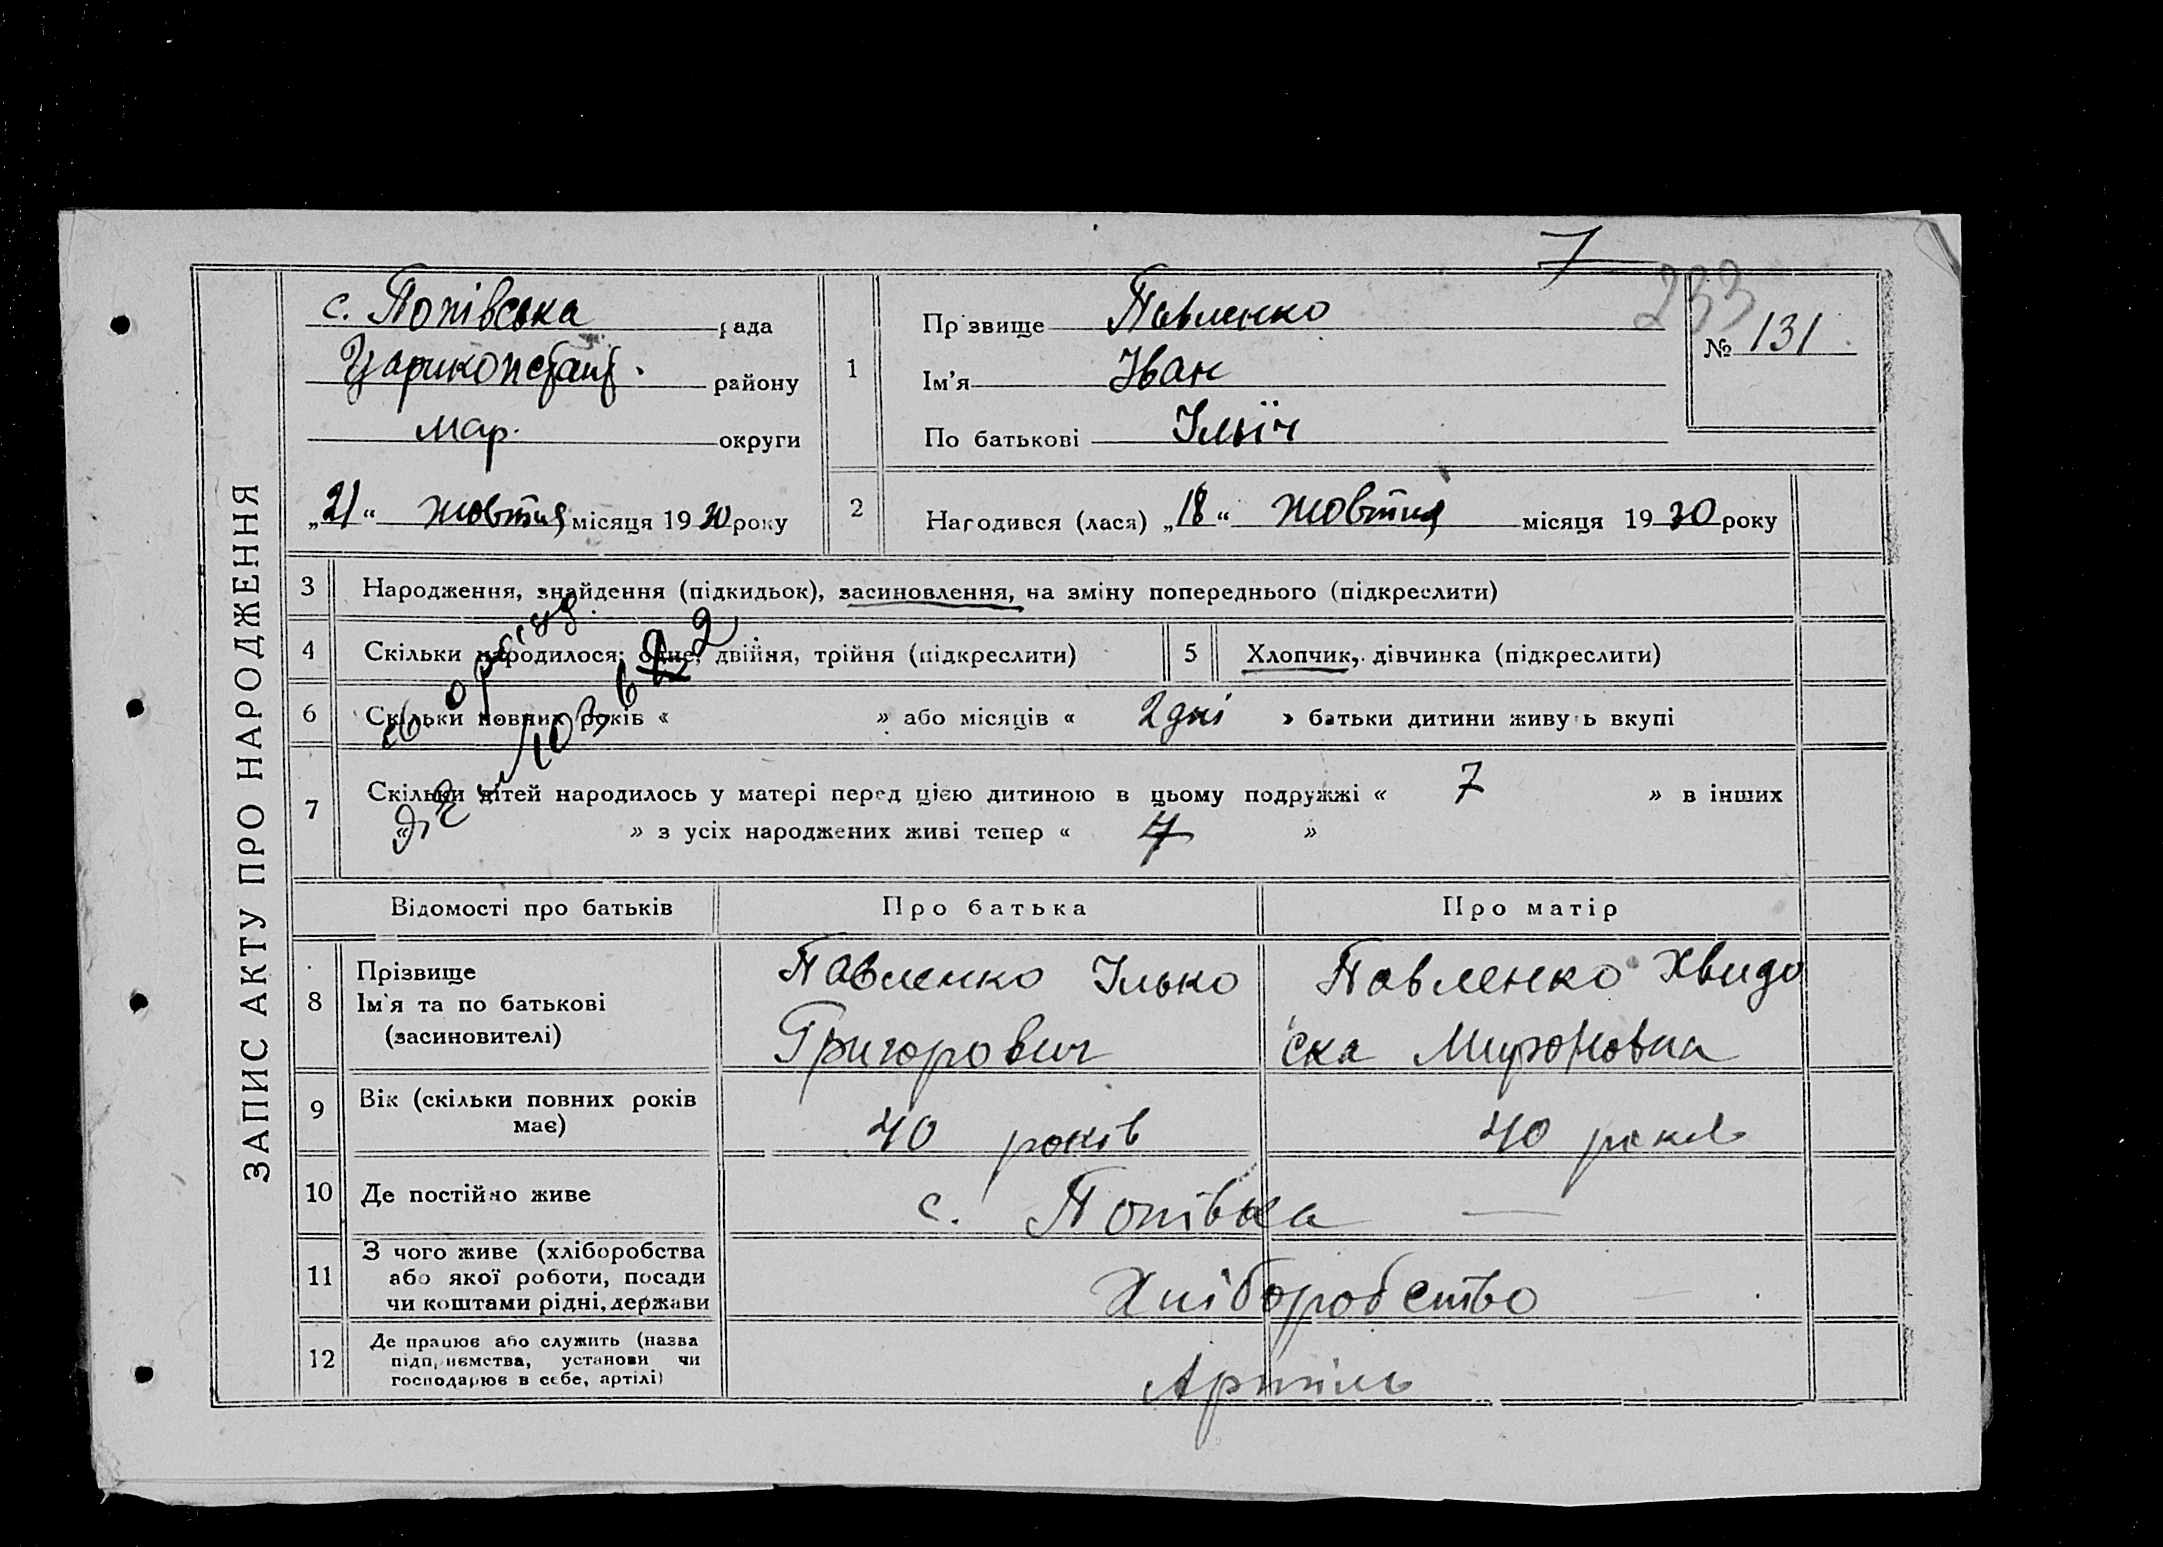 7
233
ЗАПИС АКТУ ПРО НАРОДЖЕННЯ
с. Попівська рада
Цариконстант. району
Мар. округи
„21“ жовтня місяця 1930 року
1
Прізвище Павленко
Ім'я Іван
По батькові Ількіч
№ 131
2
Народився (лася) „18“ жовтня місяця 1930 року
3 Народження, знайдення (підкидьок), засиновлення, на зміну попереднього (підкреслити)
4 Скільки народилося: одне, двійня, трійня (підкреслити)
5 Хлопчик, дівчинка (підкреслити)
6 Скільки повних років « » або місяців « 2 дні » батьки дитини живуть вкупі
7 Скільки дітей народилось у матері перед цією дитиною в цьому подружжі « 7 » в інших
« » з усіх народжених живі тепер « 4 »
Відомості про батьків
Про батька
Про матір
8 Прізвище
Ім'я та по батькові
(засиновителі)
Павленко Ілько
Григорович
Павленко Хведо
ська Мироновна
9 Вік (скільки повних років
має)
40 років
40 років
10 Де постійно живе
с. Попівка —
11 З чого живе (хліборобства
або якої роботи, посади
чи коштами рідні, держави
Хліборобство
12 Де працює або служить (назва
підприємства, установи чи
господарює в себе, артілі)
Артіль